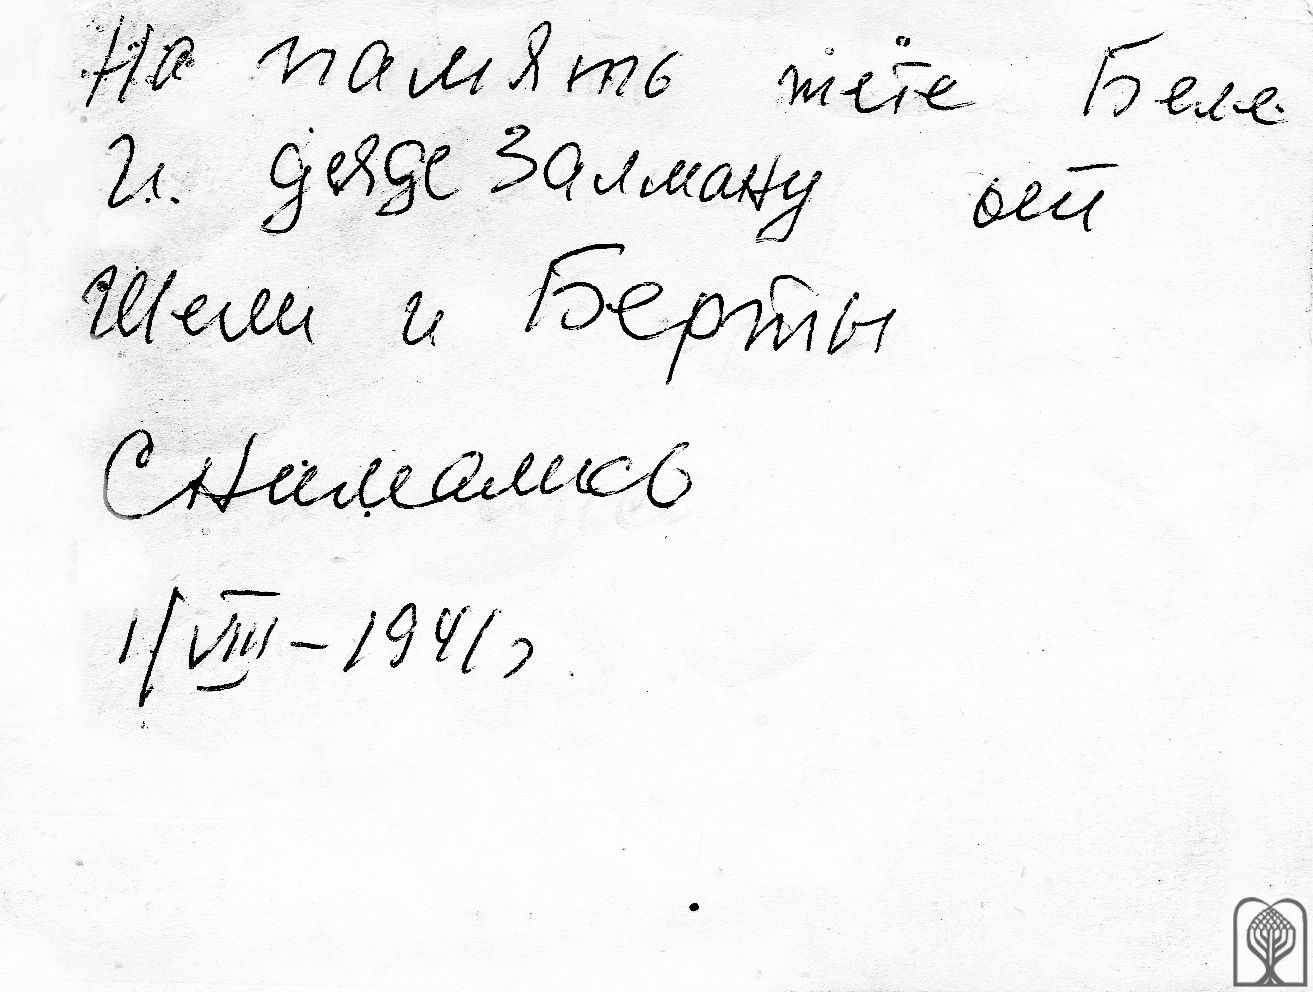 На память тёте Беле
и дяде Залману от
Шели и Берты
Снимались
1/VIII – 1941 г